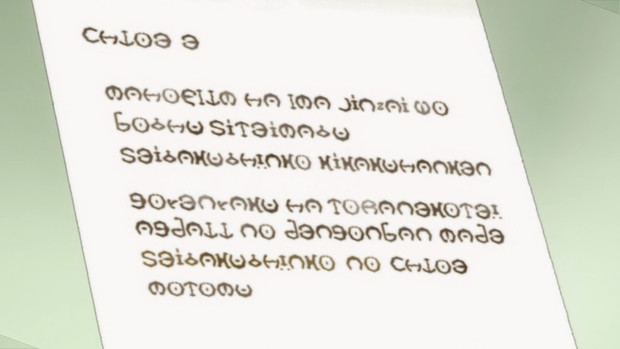 CHLOE E
MAHOFILM HA IMA JINZAI WO
BOSHU SITEIMASU
SEISAKUSHINKO KIKAKUHANKEN
GORENRAKU HA TORANEKOTEI
AGDALL NO DENGONBAN MADE
SEISAKUSHINKO NO CHLOE
MOTOMU